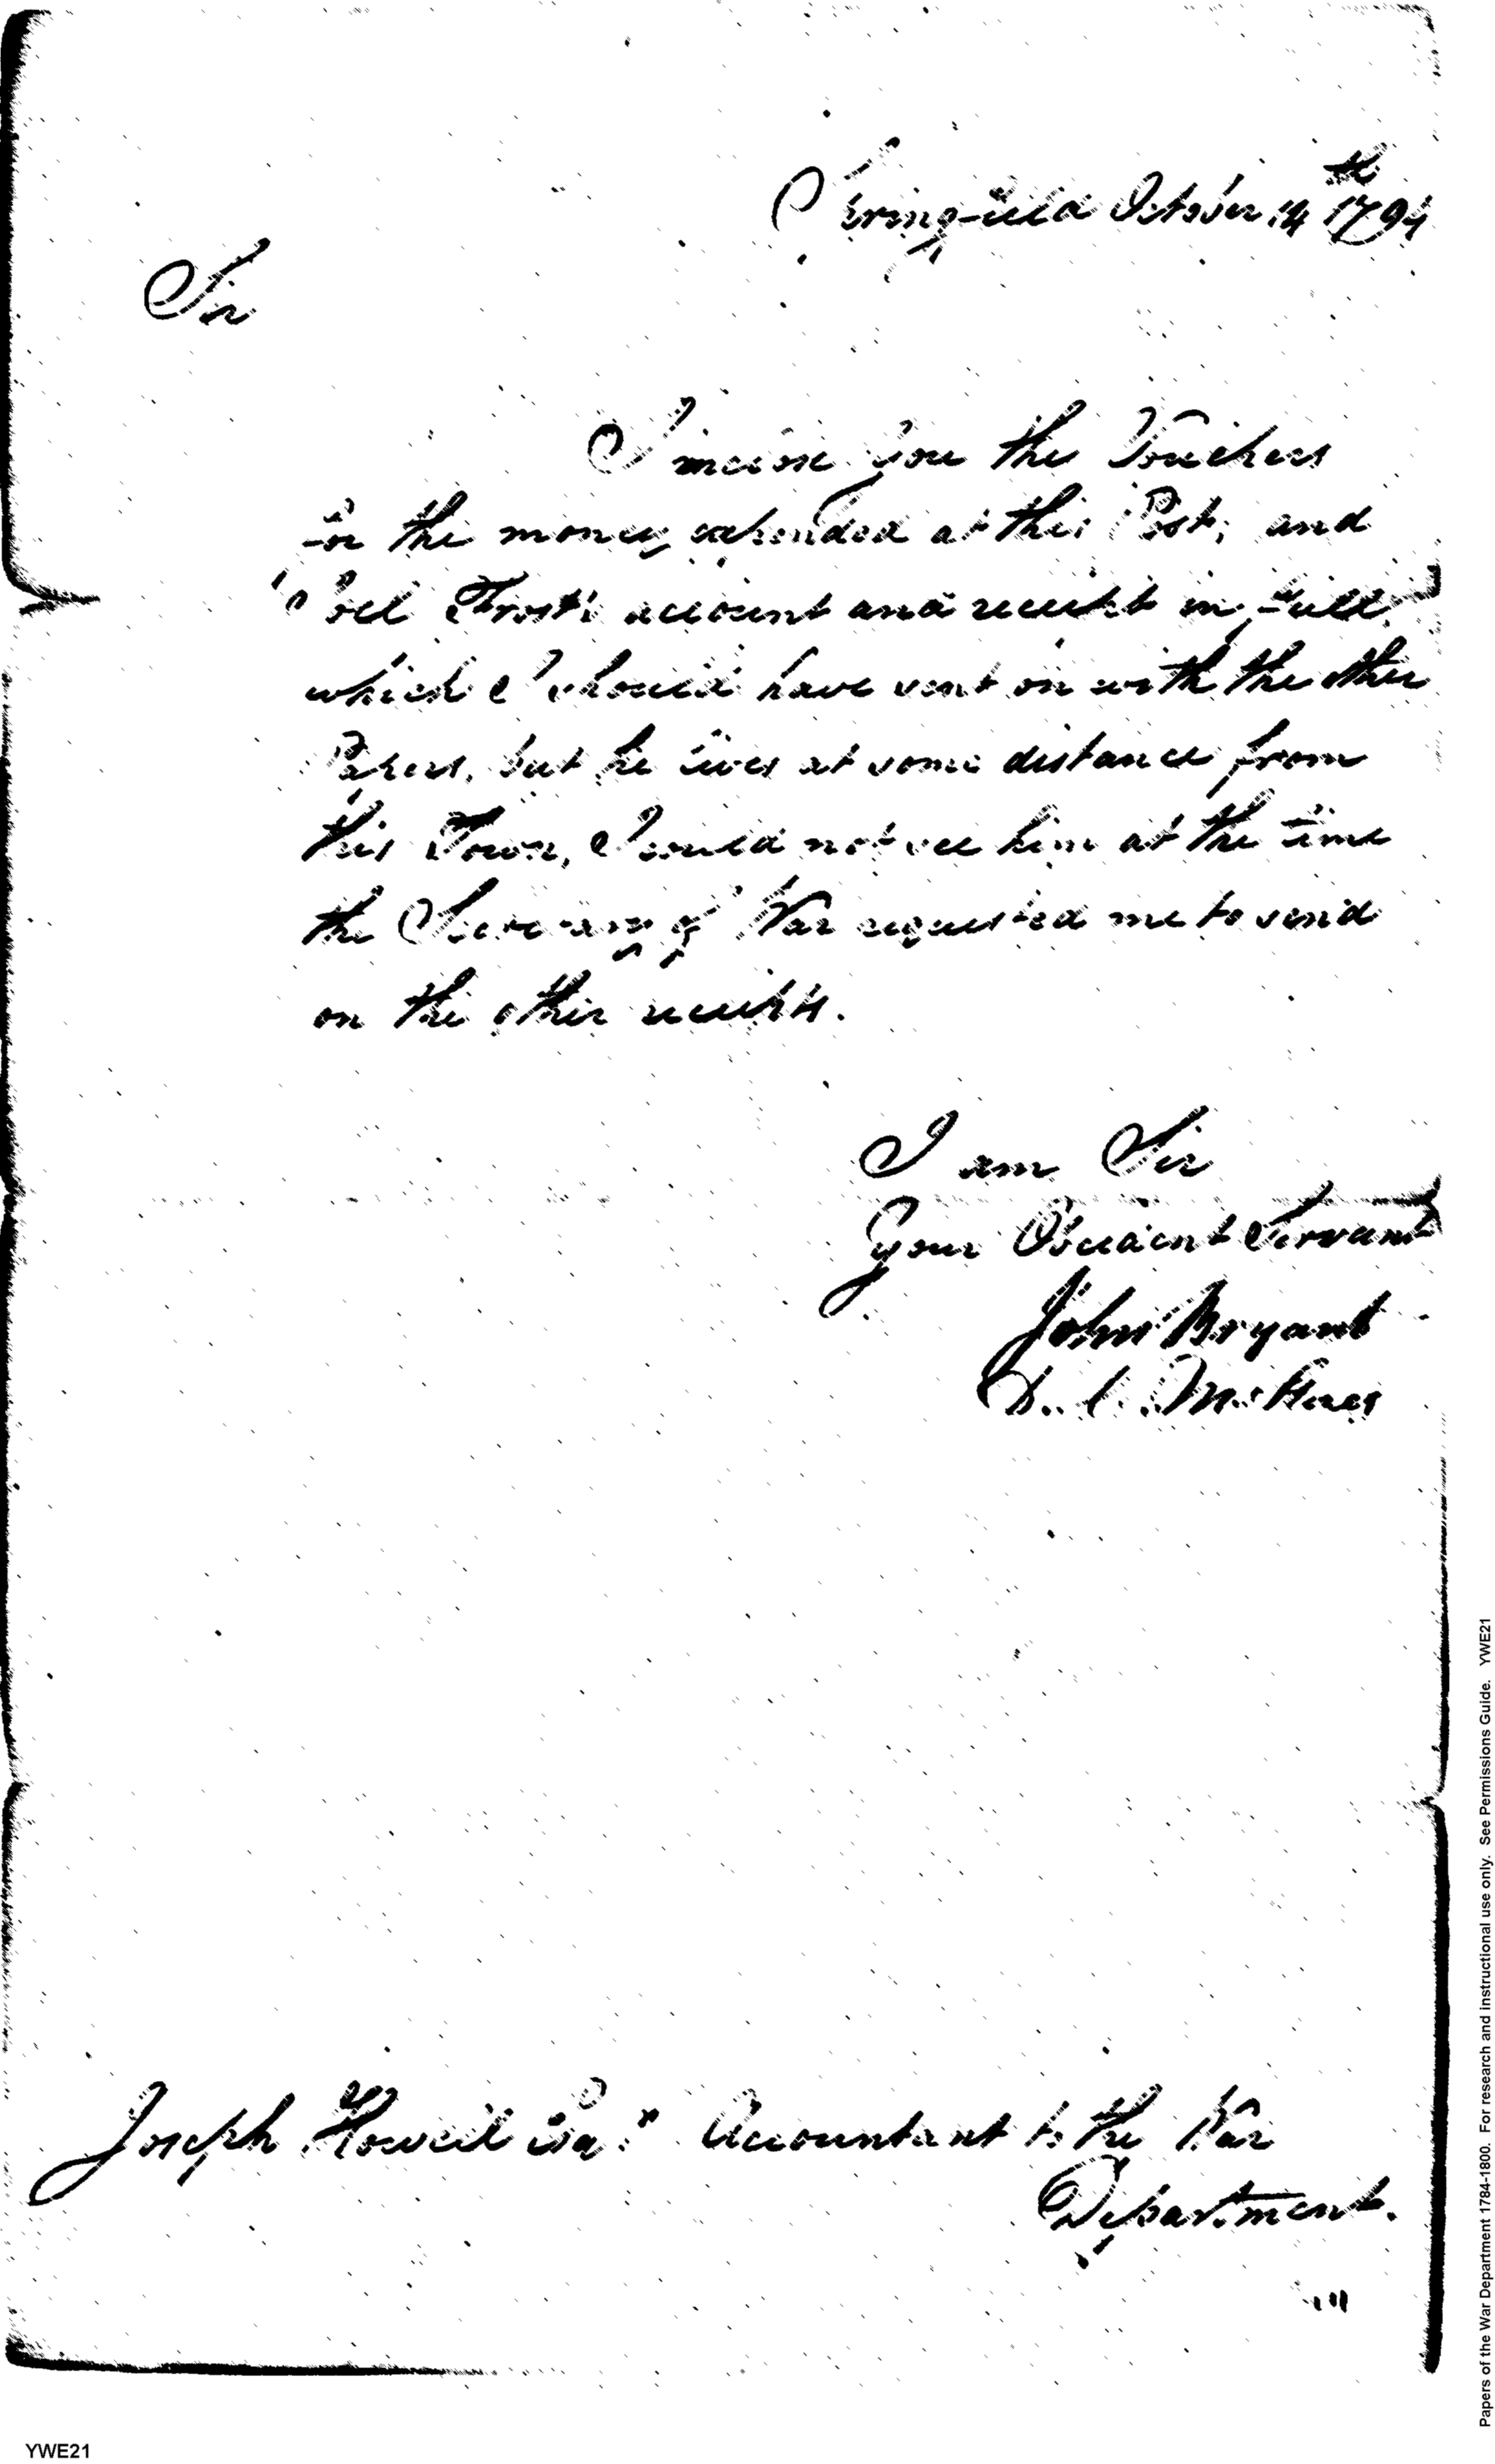 Springfield October 14th 1794
Sir
I inclose you the Vouchers
for the money expended at this Post, and
Joel Frost's account and receipt in full
which I should have sent on with the other
Papers, but he lives at some distance from
this Town, I could not see him at the time
the Secretary of War requested me to send
on the other receipts.
I am Sir
Your Obedient Servant
John Bryant
D. C. M. Stores
Joseph Howell Esqr Accountant to the War
Department.
YWE21
Papers of the War Department 1784-1800. For research and instructional use only. See Permissions Guide. YWE21